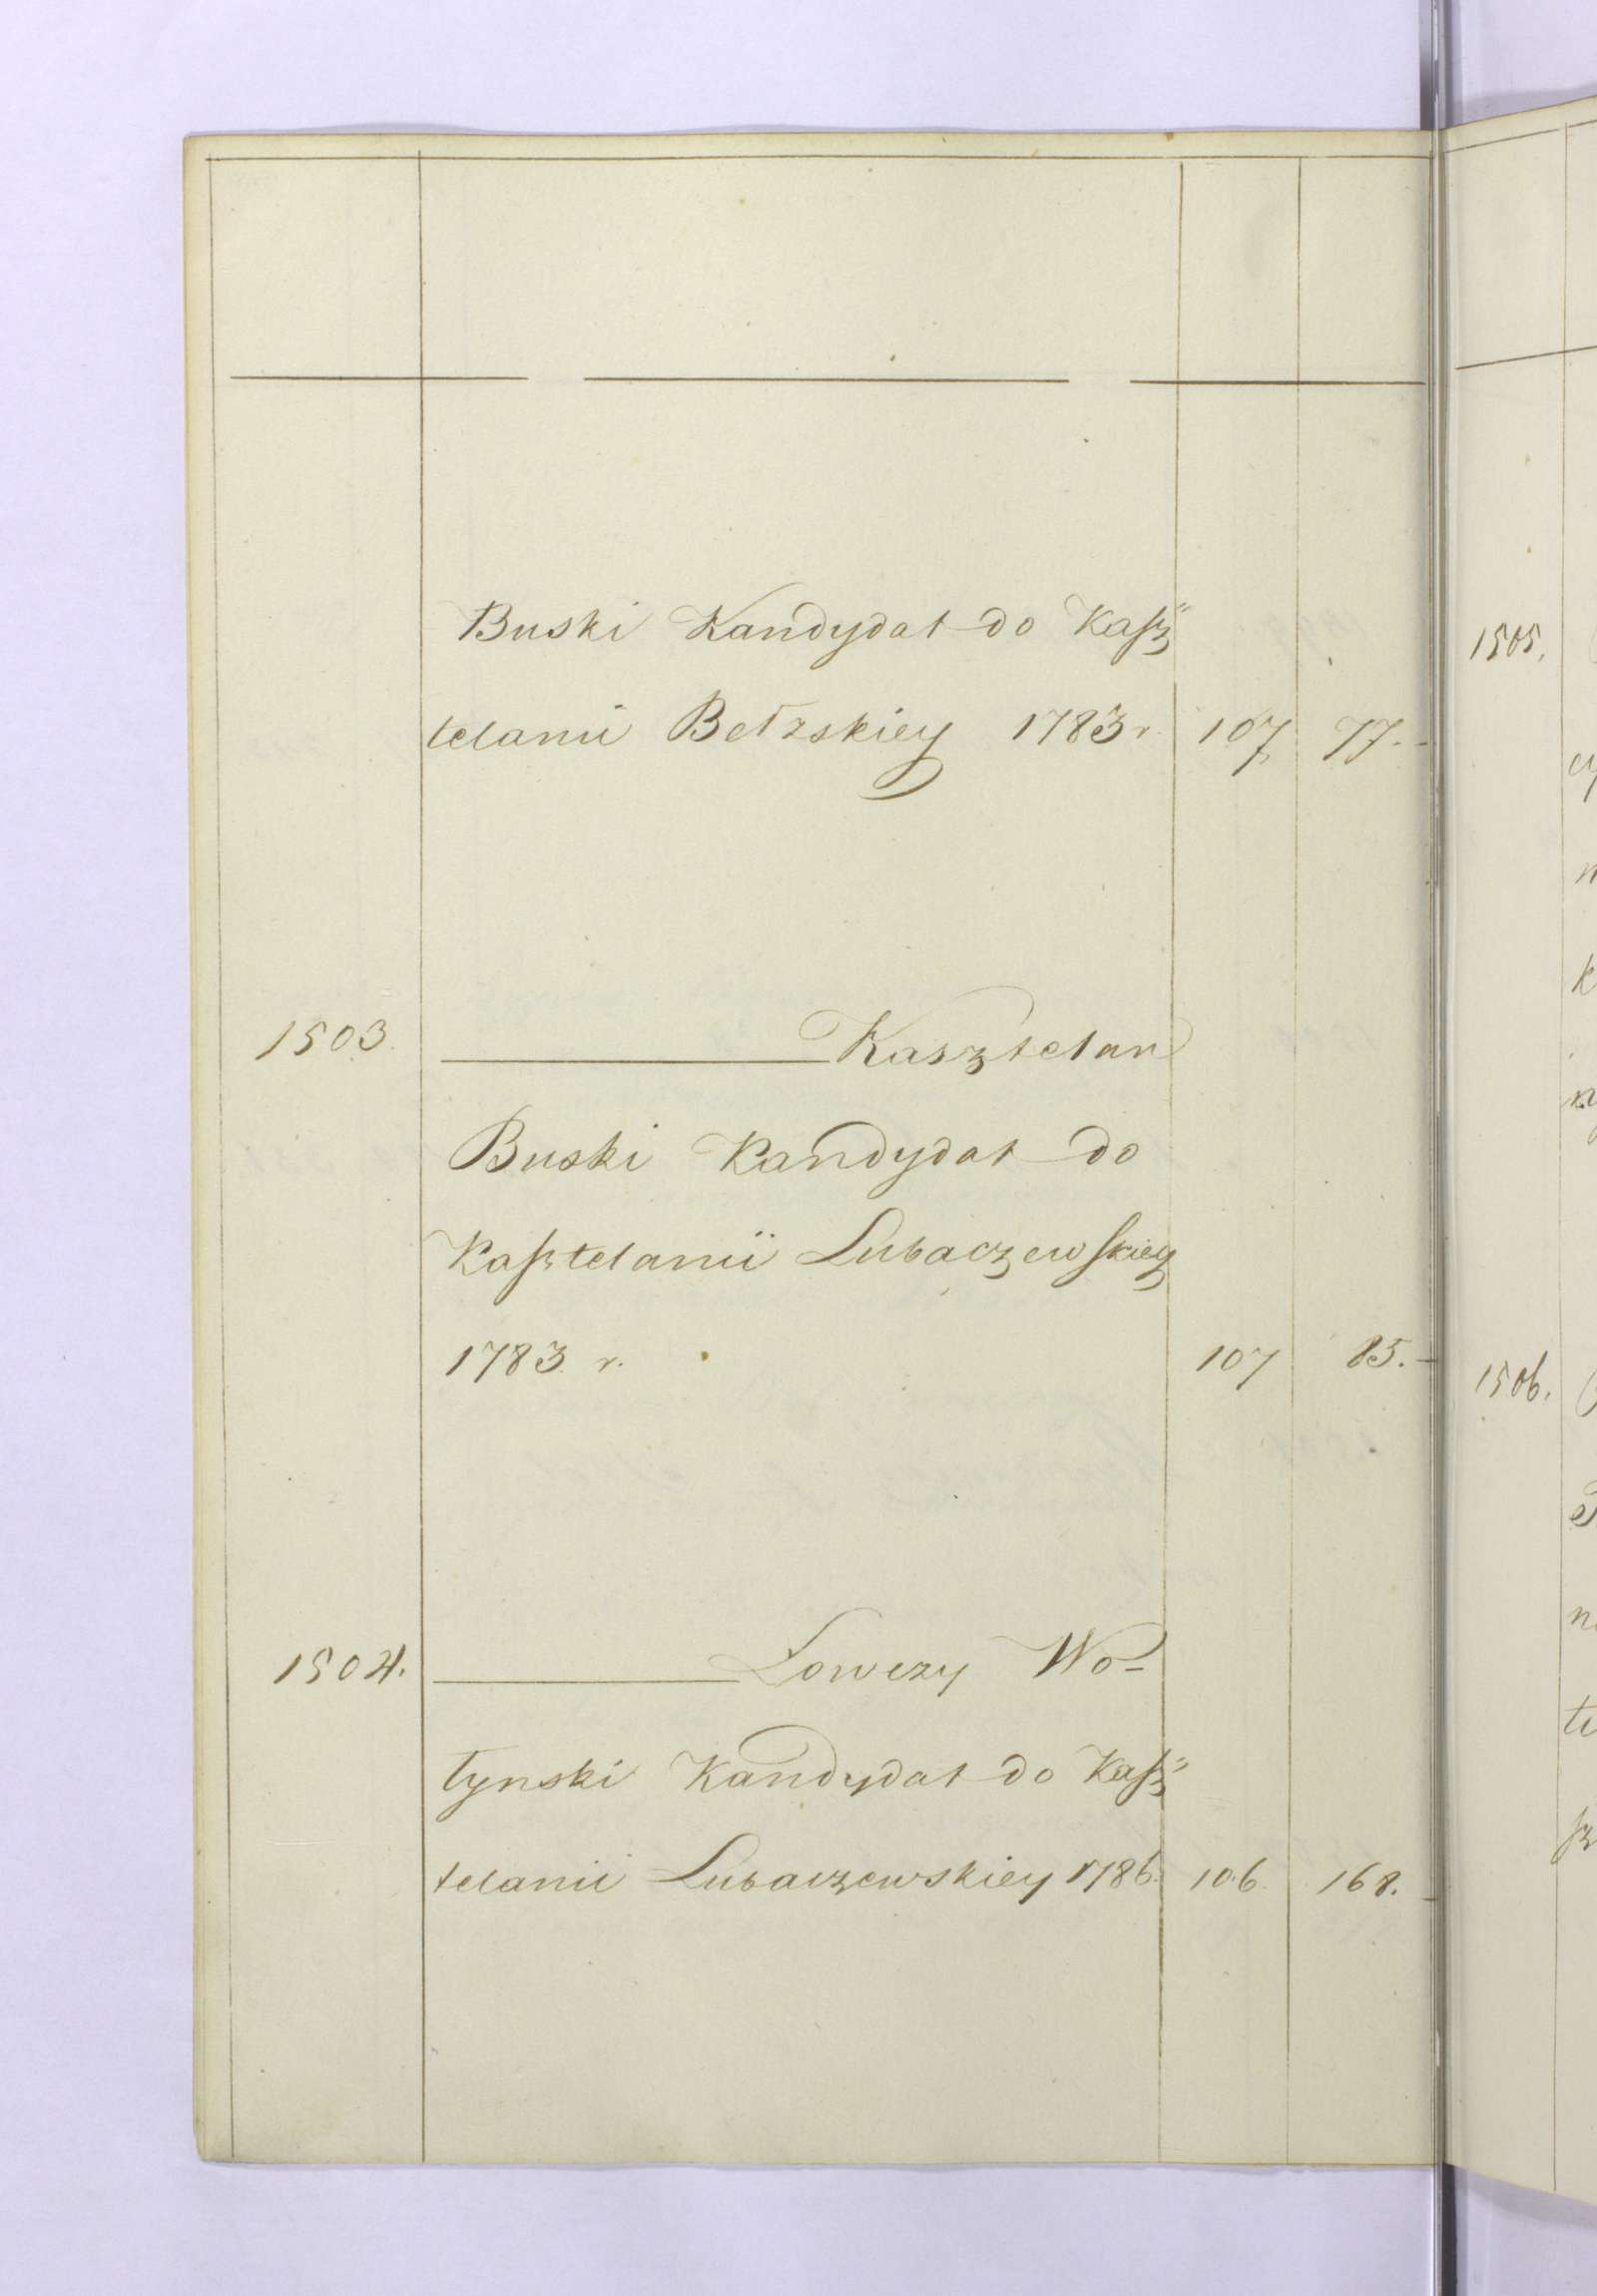 Buski Kandydat do Kasz=
telanii Bełzskiey 1783 r. 107 77.
1503. Kasztelan
Buski Kandydat do
Kasztelanii Lubaczewskiey
1783 r. 107 85.
1504. Łowczy Wo-
łynski Kandydat do Kasz=
telanii Lubaczewskiey 1786. 106. 168.
1505.
1506.